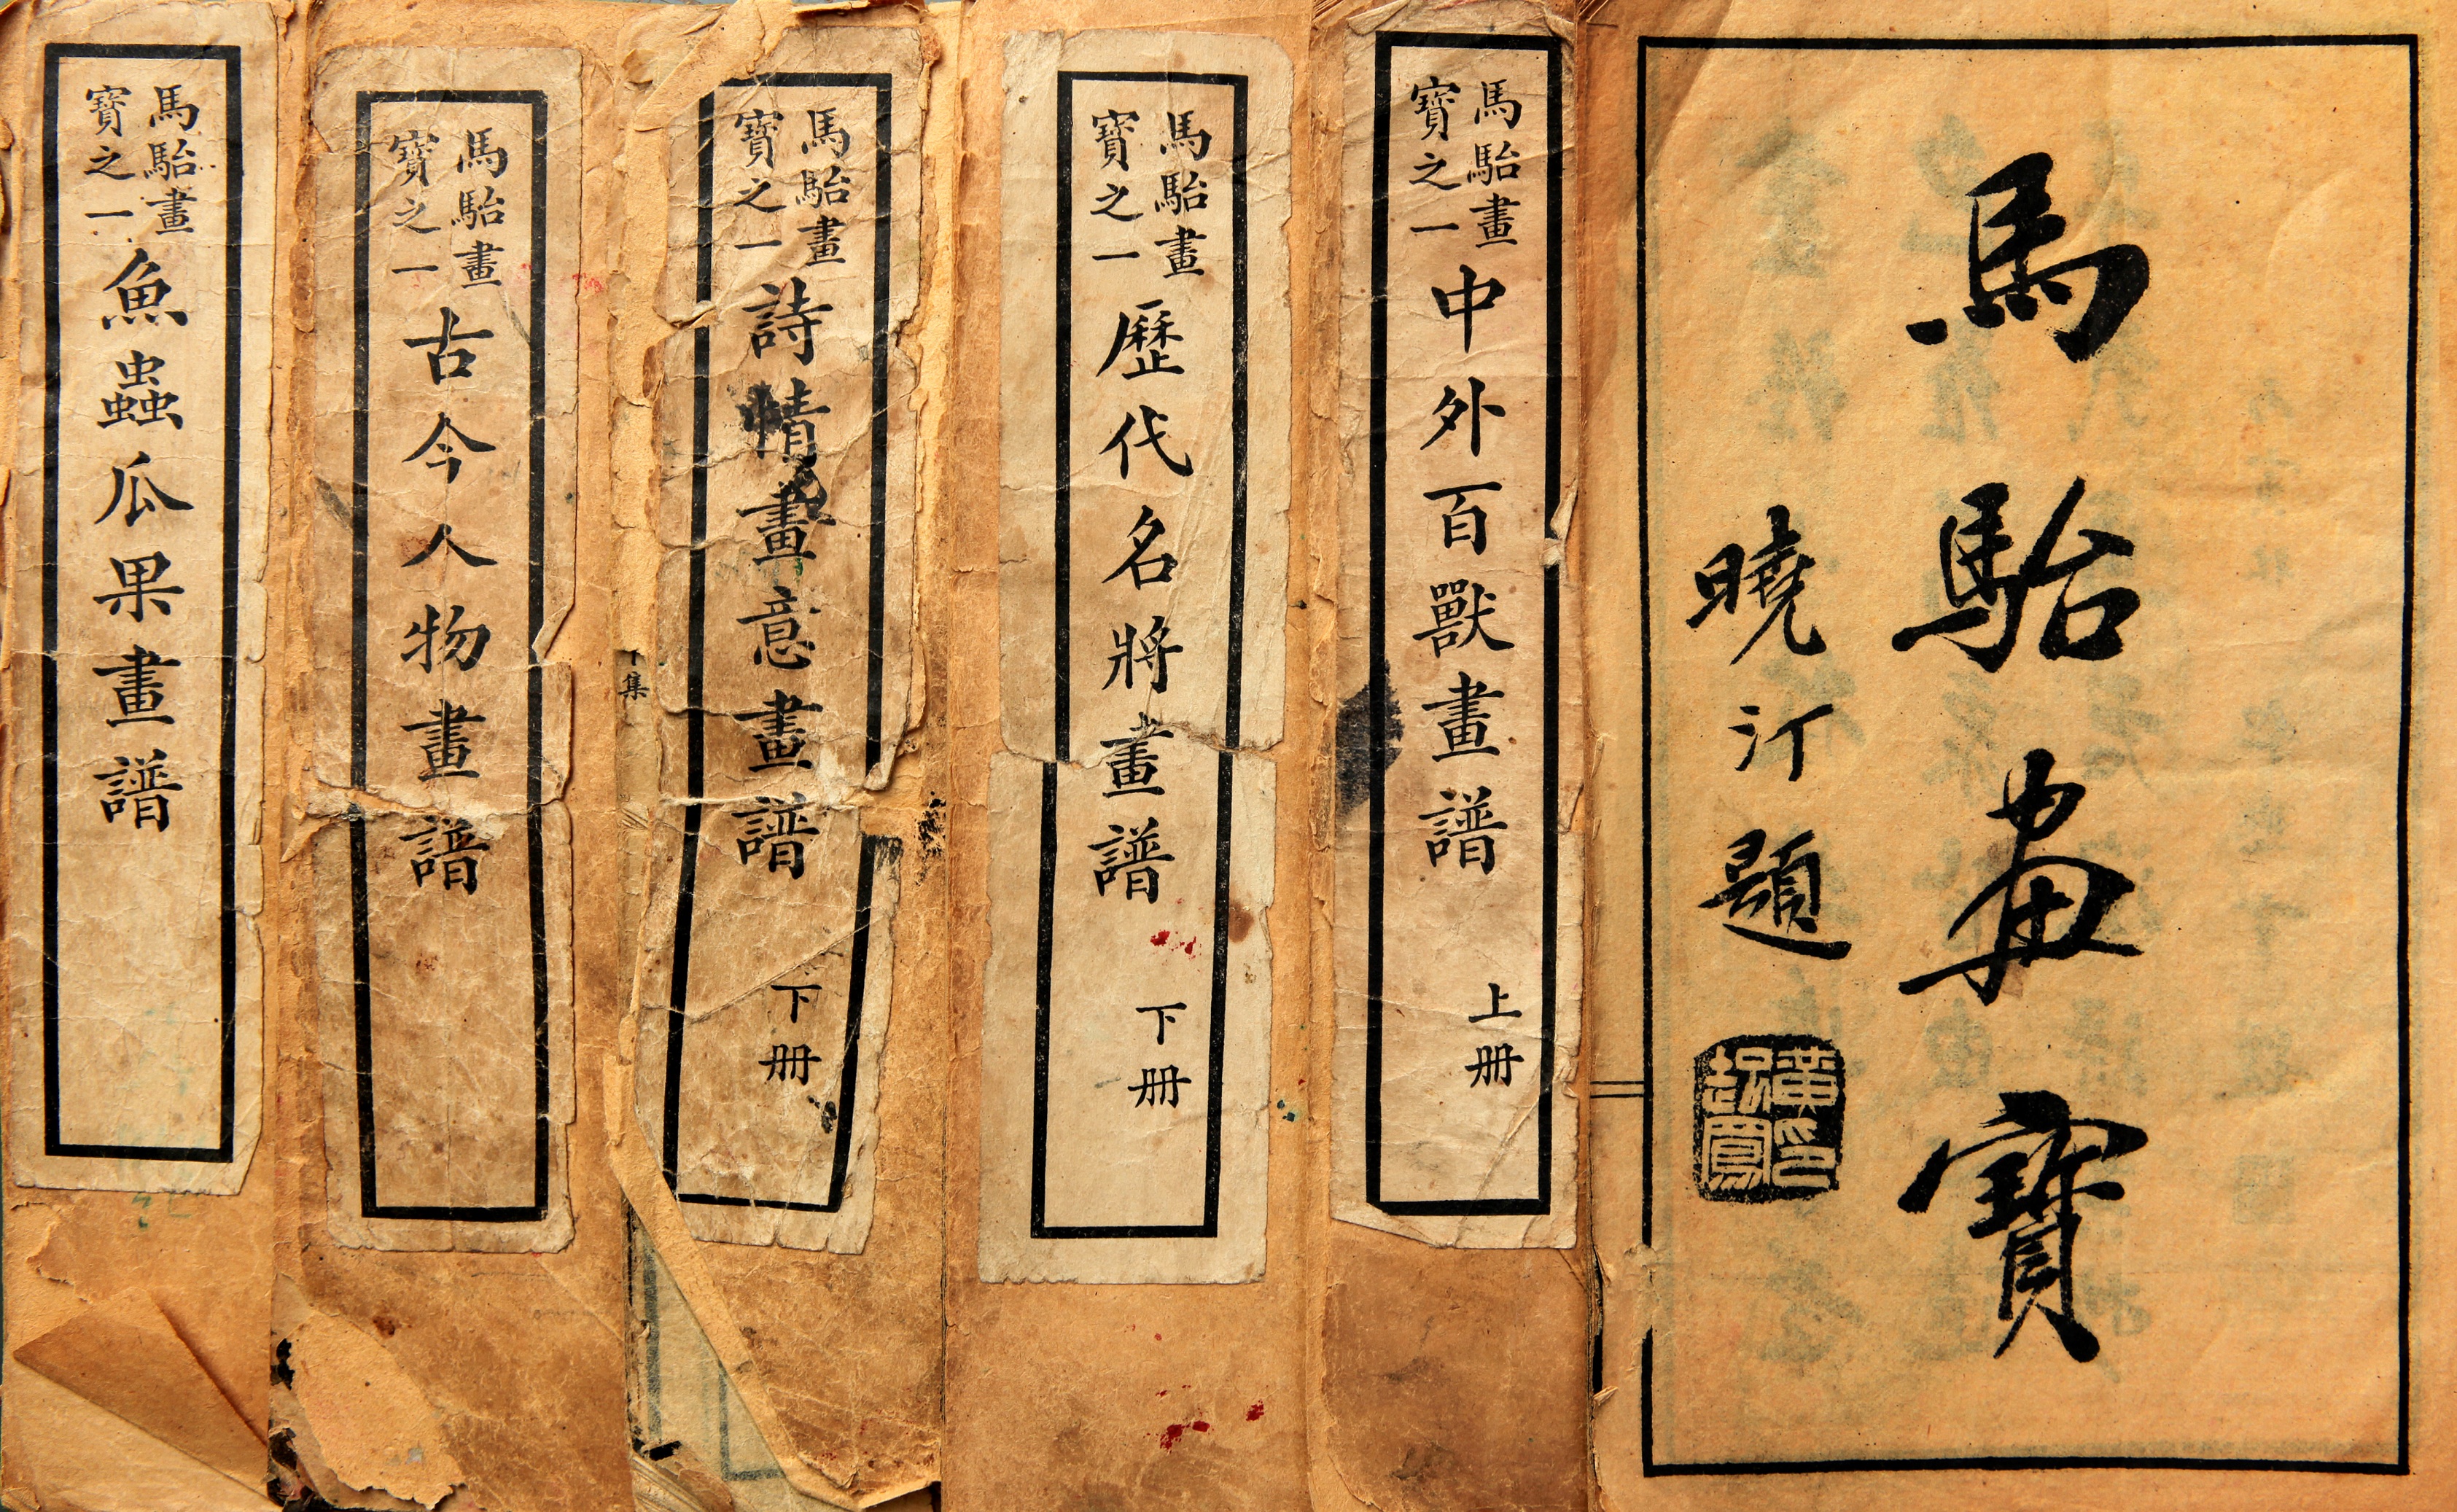 馬駘畫寶
曉汀題
黃起鳳印
馬駘畫
寶之一
中外百獸畫譜
上册
馬駘畫
寶之一
歷代名將畫譜
下册
馬駘畫
寶之一
詩情畫意畫譜
下册
下集
馬駘畫
寶之一
古今人物畫譜
馬駘畫
寶之一
魚蟲瓜果畫譜